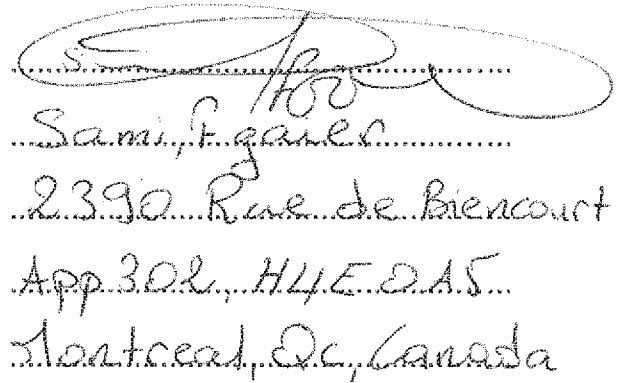 Sami, Fgaier
2390 Rue de Biencourt
App 302, H4E 0A5
Montreal, Qc, Canada